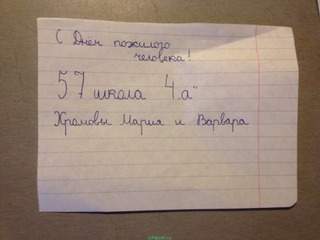 С Днем пожилого
человека!
57 школа 4 „а"
Хромовы Мария и Варвара